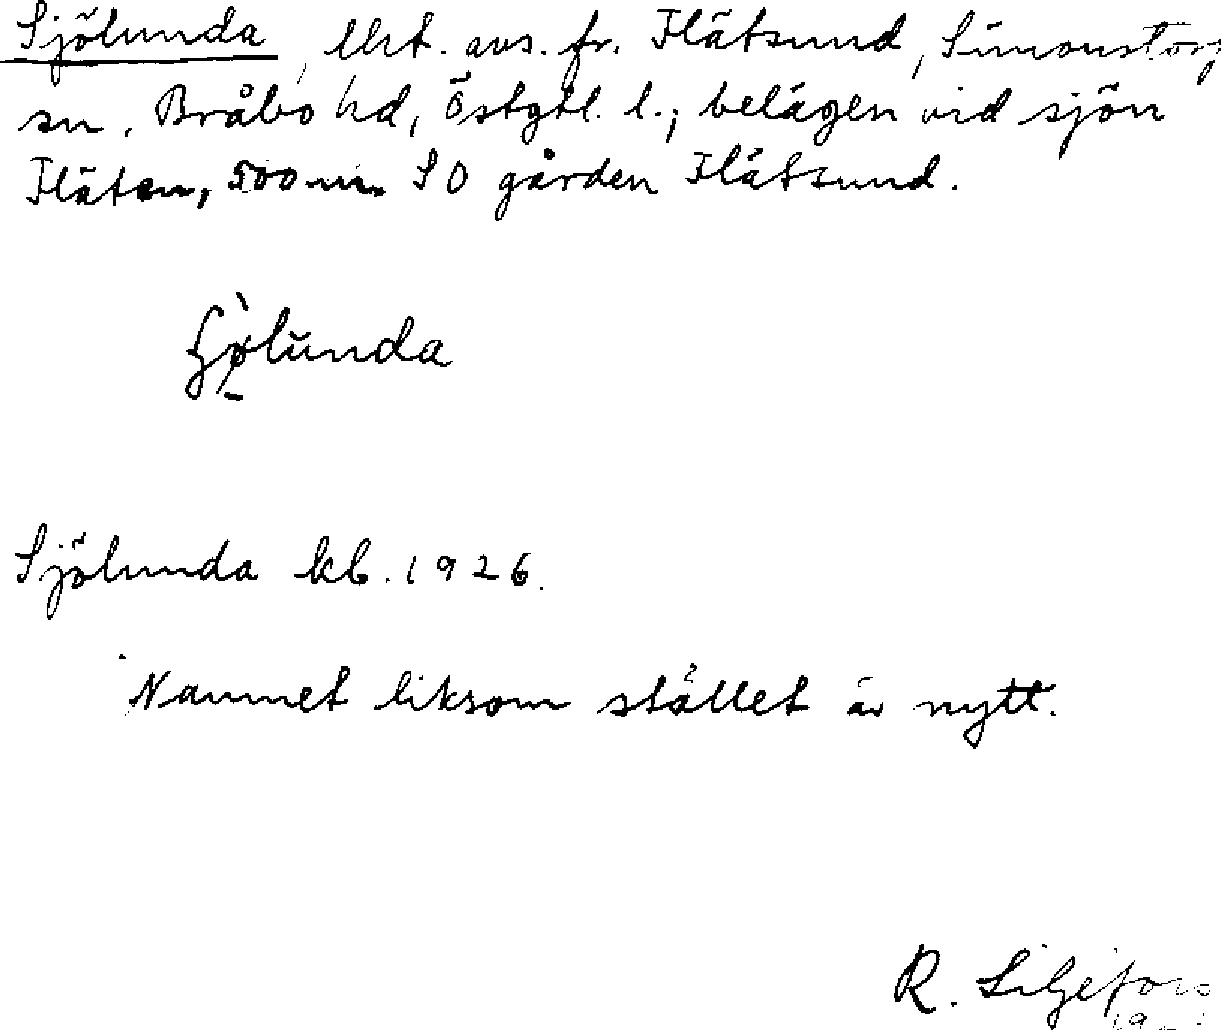 Sjölunda, lht. avs. fr. Flätsund, Simonstorp
sn, Bråbo hd, Östgtl. l.; belägen vid sjön
Fläten, 500 m SO gården Flätsund.
Sjölunda kb. 1926.
Namnet liksom stället är nytt.
R. Liljefors